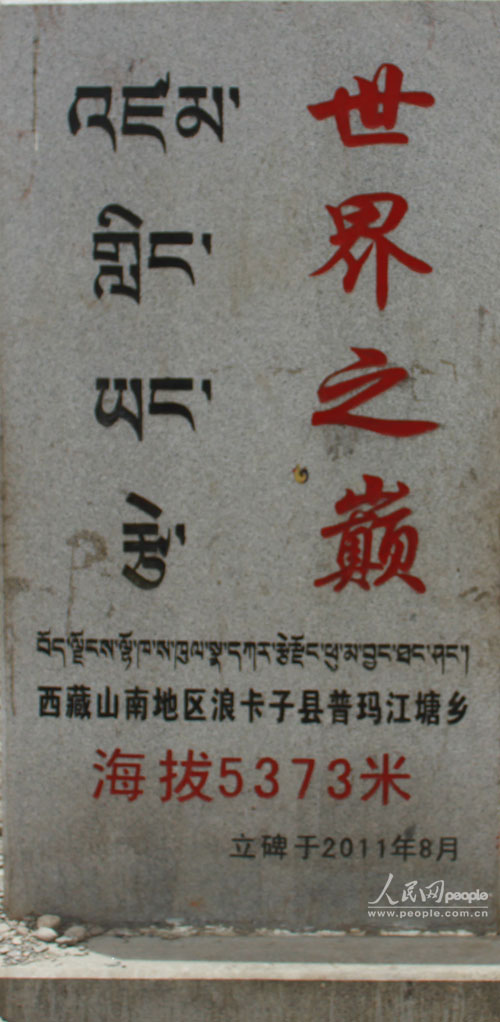 འཛམ་
གླིང་
ཡང་
རྩེ
世界之巅
བོད་ལྗོངས་ལྷོ་ཁ་ས་ཁུལ་སྣ་དཀར་རྩེ་རྫོང་ཕུ་མ་བྱང་ཐང་ཤང་།
西藏山南地区浪卡子县普玛江塘乡
海拔5373米
立碑于2011年8月
人民网people
www.people.com.cn